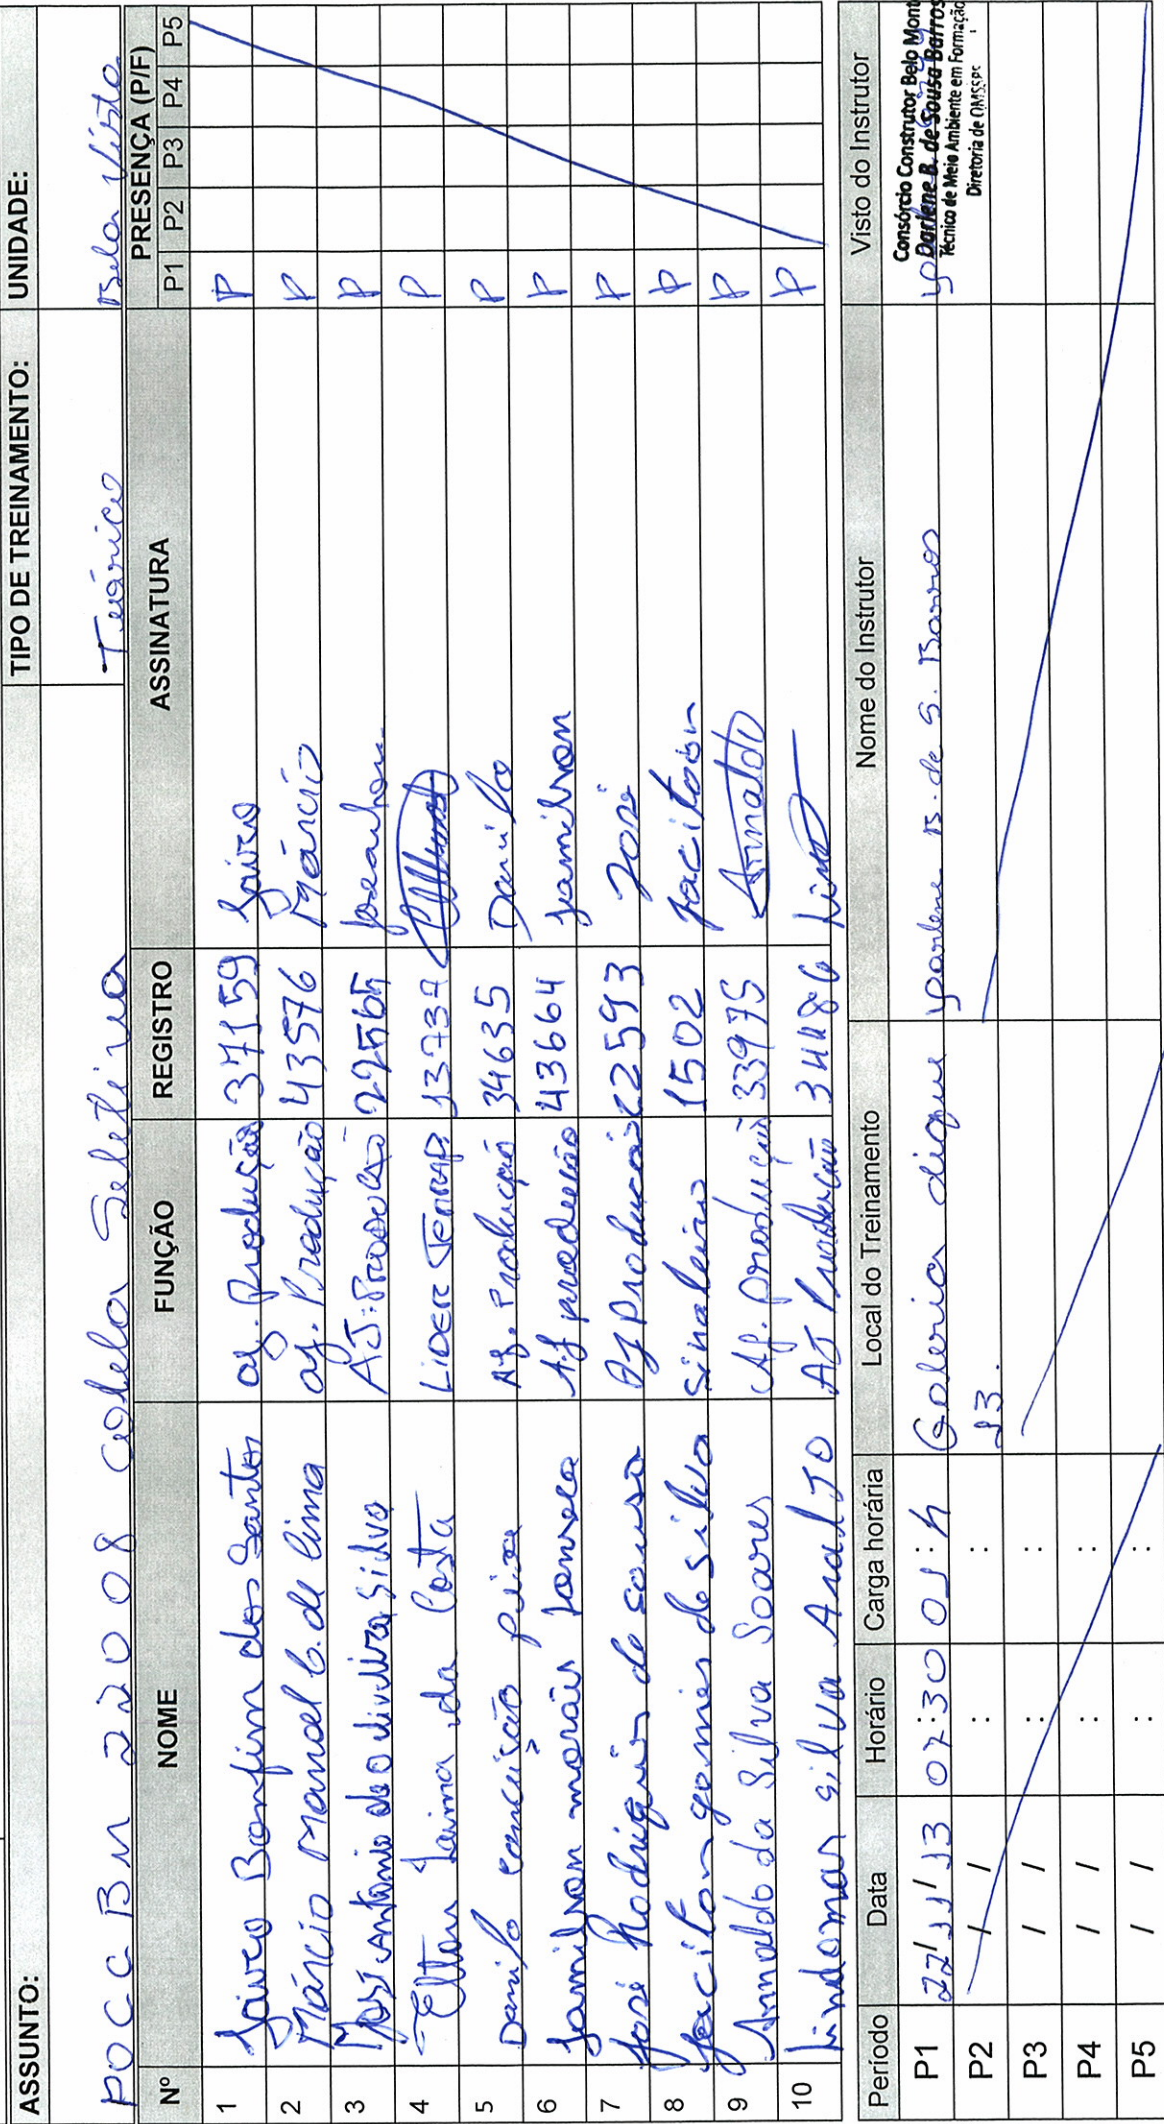 ASSUNTO: TIPO DE TREINAMENTO: UNIDADE:
POCBM 22008 Coleta Seletiva Teórico Bela Vista
Nº NOME FUNÇÃO REGISTRO ASSINATURA PRESENÇA (P/F)
P1 P2 P3 P4 P5
1 Jairo Bomfim dos Santos aj. Produção 37159 Jairo P
2 Márcio Manoel C. de Lima aj. Produção 43576 Márcio P
3 José Antonio de Oliveira Silva AJ: Produção P
4 Elton Lima da Costa LIDER 13739 P
5 Danilo conceição Aj. Produção 34635 Danilo P
6 Jamilson morais Aj produção 43664 Jamilson P
7 José Rodrigues de sousa Aj Produção 22593 José P
8 Jaciton gomes da silva Sinaleiro 1502 Jaciton P
9 Arnaldo da Silva Soares Aj. produção 33975 Arnaldo P
10 Lindomar silva AJ Produção 34486 P
Período Data Horário Carga horária Local do Treinamento Nome do Instrutor Visto do Instrutor
P1 22/11/13 07:30 01:h Galeria dique Darlene B. de S. Barros
Consórcio Construtor Belo Mont
Darlene B. de Sousa Barros
Técnico de Meio Ambiente em Formação
Diretoria de QMSSPC
P2 / / : 13.
P3 / / :  :
P4 / / :  :
P5 / / :  :